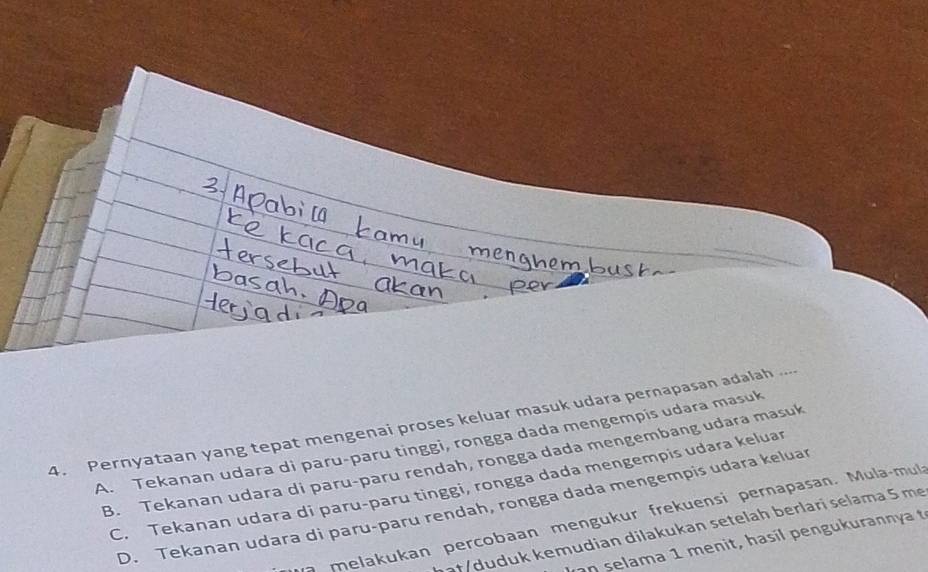 3. Apabila kamu menghembusk
ke kaca, maka per
tersebut akan
basah. Apa
terjadi
4. Pernyataan yang tepat mengenai proses keluar masuk udara pernapasan adalah ....
A. Tekanan udara di paru-paru tinggi, rongga dada mengempis udara masuk
B. Tekanan udara di paru-paru rendah, rongga dada mengembang udara masuk
C. Tekanan udara di paru-paru tinggi, rongga dada mengempis udara keluar
D. Tekanan udara di paru-paru rendah, rongga dada mengempis udara keluar
melakukan percobaan mengukur frekuensi pernapasan. Mula-mula
/duduk kemudian dilakukan setelah berlari selama 5 me
selama 1 menit, hasil pengukurannya t